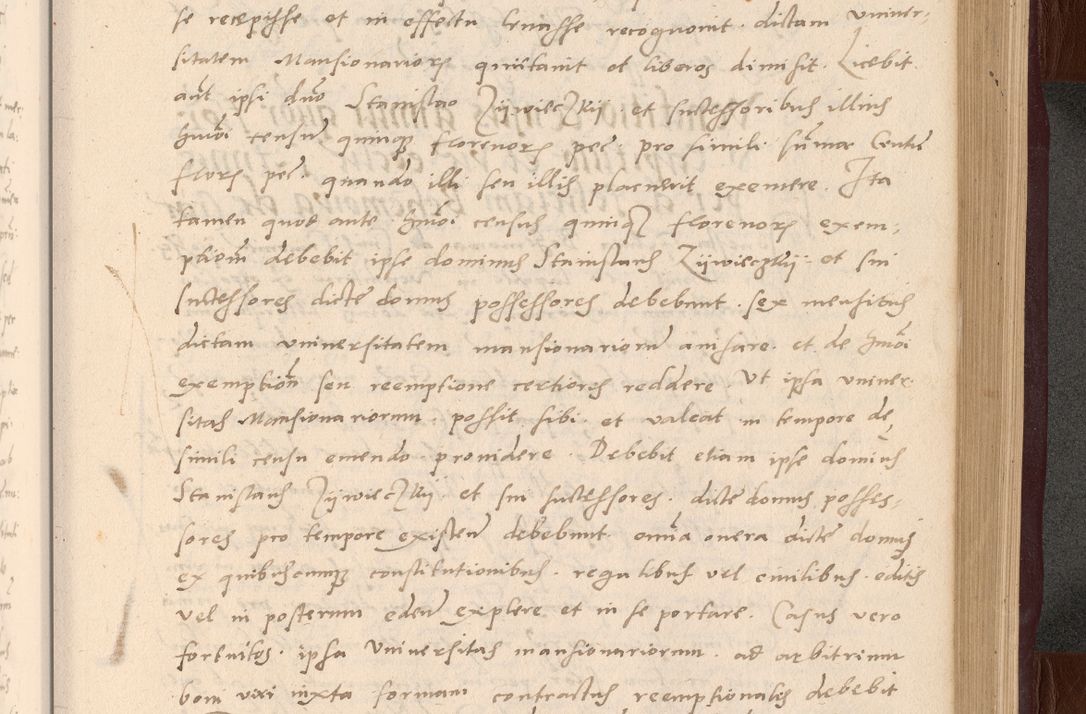 se recepisse et in effectu levasse recognovit. dictam univer-
sitatem Mansionarior̄ quietavit et liberos dimisit. Licebit
aūt ipsi dn̄o Stanislao Zÿwieczkij. et successoribus illius
hmōi censum quinq̄ florenor̄ pēc. pro simili sūma Centū
flor̄ pēc. quando illi seu illis placuerit exemere. Ita
tamen quod ante hmōi census quinq̄ florenor̄ exem-
ptionē debebit ipse dominus Stanislaus Zÿwieczkij. et sui
successores dictē domus possessores debebunt. sex mensibus
dictam universitatem mansionariorū avisare. et de hmōi
exemptionē seu reemptione certiores reddere. Ut ipsa univer-
sitas Mansionariorum. possit sibi. et valeat in tempore de
simili censu emendo. providere. Debebit etiam ipse dominus
Stanislaus Zÿwieczkij. et sui successores. dictē domus posses-
sores pro tempore existeñ debebunt. omīa onera dictē domus
ex quibuscumq̄ constitutionibus. regalibus vel civilibus. editis
vel in posterum edeñ explere et in se portare. Casus vero
fortuitos. ipsa Universitas mansionariorum. ad arbitrium
boni viri iuxta formam contractus reemptionalis debebit